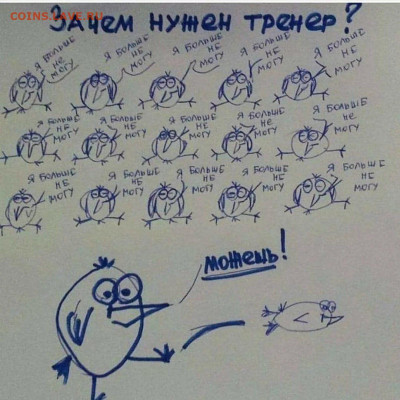 COINS.LAVE.RU
Зачем нужен тренер?
Я БОЛЬШЕ НЕ МОГУ
Я БОЛЬШЕ НЕ МОГУ
Я БОЛЬШЕ НЕ МОГУ
Я БОЛЬШЕ НЕ МОГУ
Я БОЛЬШЕ НЕ МОГУ
Я БОЛЬШЕ НЕ МОГУ
Я БОЛЬШЕ НЕ МОГУ
Я БОЛЬШЕ НЕ МОГУ
Я БОЛЬШЕ НЕ МОГУ
Я БОЛЬШЕ НЕ МОГУ
Я БОЛЬШЕ НЕ МОГУ
Я БОЛЬШЕ НЕ МОГУ
Я БОЛЬШЕ НЕ МОГУ
Я БОЛЬШЕ НЕ МОГУ
Я БОЛЬШЕ НЕ МОГУ
можешь!